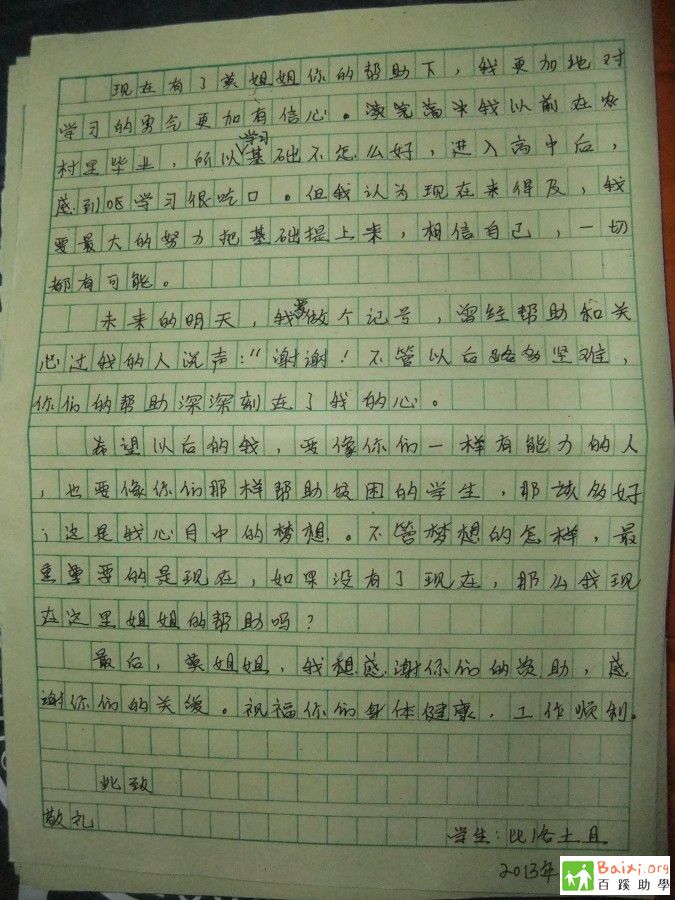 现在有了黄姐姐你的帮助下，我更加地对
学习的勇气更加有信心。读完高中我以前在农
村里毕业，所以学习基础不怎么好，进入高中后，
感到吧学习很吃口。但我认为现在来得及，我
要最大的努力把基础提上来，相信自己，一切
都有可能。
未来的明天，我要做个记号，曾经帮助和关
心过我的人说声："谢谢！不管以后路多坚难，
你们的帮助深深刻在了我的心。
希望以后的我，要像你们一样有能力的人
，也要像你们那样帮助贫困的学生，那该多好
；这是我心目中的梦想。不管梦想的怎样，最
重要的是现在，如果没有了现在，那么我现
在这里姐姐的帮助吗？
最后，黄姐姐，我想感谢你们的资助，感
谢你们的关爱。祝福你们身体健康，工作顺利。
此致
敬礼
学生：比洛土且
2013年
Baixi.org
百蹊助學